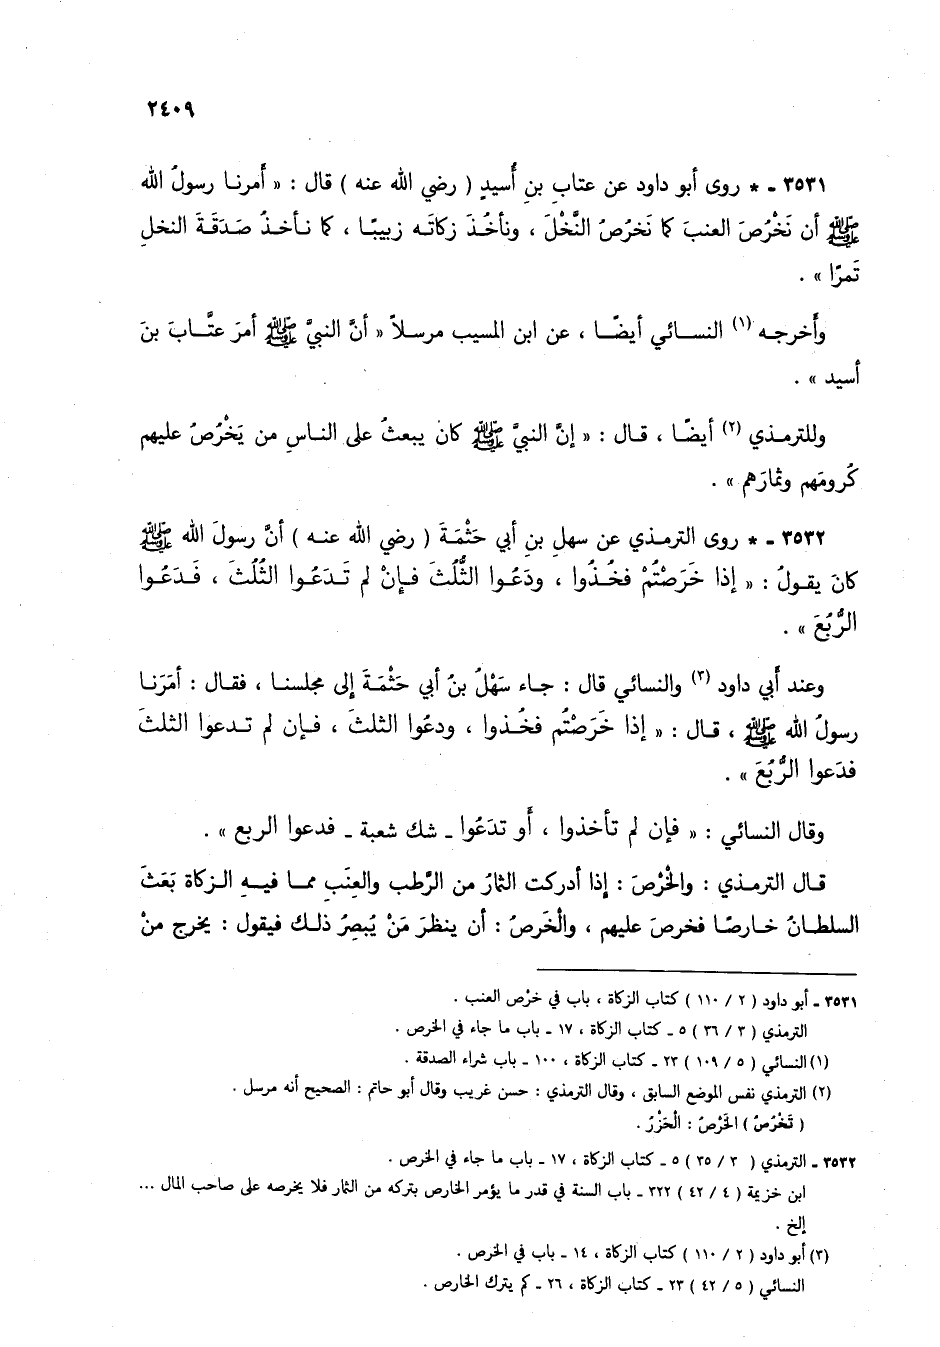 ٢٤٠٩
٣٥٣١ ـ * روى أبو داود عن عتابِ بنِ أُسيدٍ ( رضي الله عنه ) قال : « أَمرنـا رسولُ الله
ﷺ أن نَخْرُصَ العنبَ كما نَخرُصُ النَّخْلَ ، ونأخُـذَ زكاتَـه زبيبًـا ، كما نـأخـذُ صَدَقَـةَ النخلِ
تَمرًا » .
وأَخرجـه (١) النسـائي أيضًـا ، عن ابن المسيب مرسلاً « أنَّ النبيَّ ﷺ أمرَ عتَّـابَ بنَ
أسيد » .
وللترمـذي (٢) أيضًـا ، قـال : « إنَّ النبيَّ ﷺ كانَ يبعثُ على النـاسِ من يَخْرُصُ عليهم
كُرومَهم وثمارَهم » .
٣٥٣٢ ـ * روى الترمـذي عن سهلِ بنِ أبي حَثْمَـةَ ( رضي الله عنـه ) أنَّ رسولَ الله ﷺ
كانَ يقـولُ : « إذا خَرَصْتُمْ فخُـذُوا ، ودَعُـوا الثُّلُثَ فـإنْ لم تَـدَعُـوا الثُلُثَ ، فَـدَعُـوا
الرُّبُعَ » .
وعند أَبي داود (٣) والنسائي قال : جـاء سَهْلُ بنُ أبي حَثْمَـةَ إلى مجلسنـا ، فقـال : أمَرَنـا
رسولُ الله ﷺ ، قـال : « إذا خَرَصْتُم فخُـذوا ، ودعُوا الثلثَ ، فـإن لم تـدعوا الثلثَ
فدَعوا الرُّبُعَ » .
وقال النسائي : « فإن لم تأخذوا ، أَو تدَعُوا ـ شك شعبة ـ فدعوا الربع » .
قـال الترمـذي : والخَرْصَ : إذا أدركت الثمارُ من الرُّطب والعِنَبِ ممـا فيـهِ الـزكاة بَعَثَ
السلطـانُ خـارصًـا فخرصَ عليهم ، والْخَرصُ : أن ينظرَ مَنْ يُبصِرُ ذلـك فيقول : يخرج منْ
٣٥٣١ ـ أبو داود ( ٢ / ١١٠ ) كتاب الزكاة ، باب في خرْص العنب .
الترمذي ( ٣ / ٣٦ ) ٥ ـ كتاب الزكاة ، ١٧ ـ باب ما جاء في الخرص .
(١) النسائي ( ٥ / ١٠٩ ) ٢٣ ـ كتاب الزكاة ، ١٠٠ ـ باب شراء الصدقة .
(٢) الترمذي نفس الموضع السابق ، وقال الترمذي : حسن غريب وقال أبو حاتم : الصحيح أنه مرسل .
( نَخْرُصُ ) الخَرْصُ : الْحَزْرُ .
٣٥٣٢ ـ الترمذي ( ٣ / ٣٥ ) ٥ ـ كتاب الزكاة ، ١٧ ـ باب ما جاء في الخرص .
ابن خزيمة ( ٤ / ٤٢ ) ٣٢٢ ـ باب السنة في قدر ما يؤمر الخارص بتركه من الثمار فلا يخرصه على صاحب المال ...
إلخ .
(٣) أبو داود ( ٢ / ١١٠ ) كتاب الزكاة ، ١٤ ـ باب في الخرص .
النسائي ( ٥ / ٤٢ ) ٢٣ ـ كتاب الزكاة ، ٢٦ ـ كم يترك الخارص .